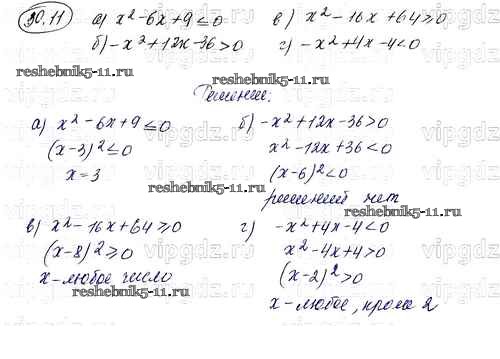 30.11
а) x² - 6x + 9 ≤ 0
б) -x² + 12x - 36 > 0
в) x² - 16x + 64 ≥ 0
г) -x² + 4x - 4 < 0
reshebnik5-11.ru reshebnik5-11.ru
Решение:
а) x² - 6x + 9 ≤ 0
(x-3)² ≤ 0
x = 3
б) -x² + 12x - 36 > 0
x² - 12x + 36 < 0
(x-6)² < 0
решений нет
reshebnik5-11.ru
в) x² - 16x + 64 ≥ 0
(x-8)² ≥ 0
x - любое число
г) -x² + 4x - 4 < 0
x² - 4x + 4 > 0
(x-2)² > 0
x - любое, кроме 2
reshebnik5-11.ru
vipgdz.ru